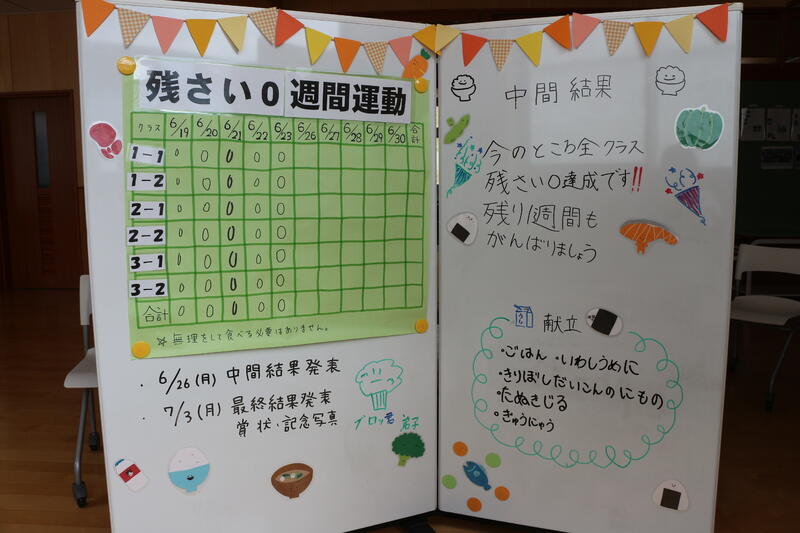 残さい0週間運動
クラス 6/19 6/20 6/21 6/22 6/23 6/26 6/27 6/28 6/29 6/30 合計
1-1 0 0 0 0 0
1-2 0 0 0 0 0
2-1 0 0 0 0 0
2-2 0 0 0 0 0
3-1 0 0 0 0 0
3-2 0 0 0 0 0
合計 0 0 0 0 0
☆無理をして食べる必要はありません。
・6/26(月) 中間結果発表
・7/3(月) 最終結果発表
賞状・記念写真
ブロッ君 弟子
中間結果
今のところ全クラス
残さい0達成です!!
残り1週間も
がんばりましょう
献立
・ごはん ・いわしうめに
・きりぼしだいこんのにもの
・たぬきじる
・ぎゅうにゅう